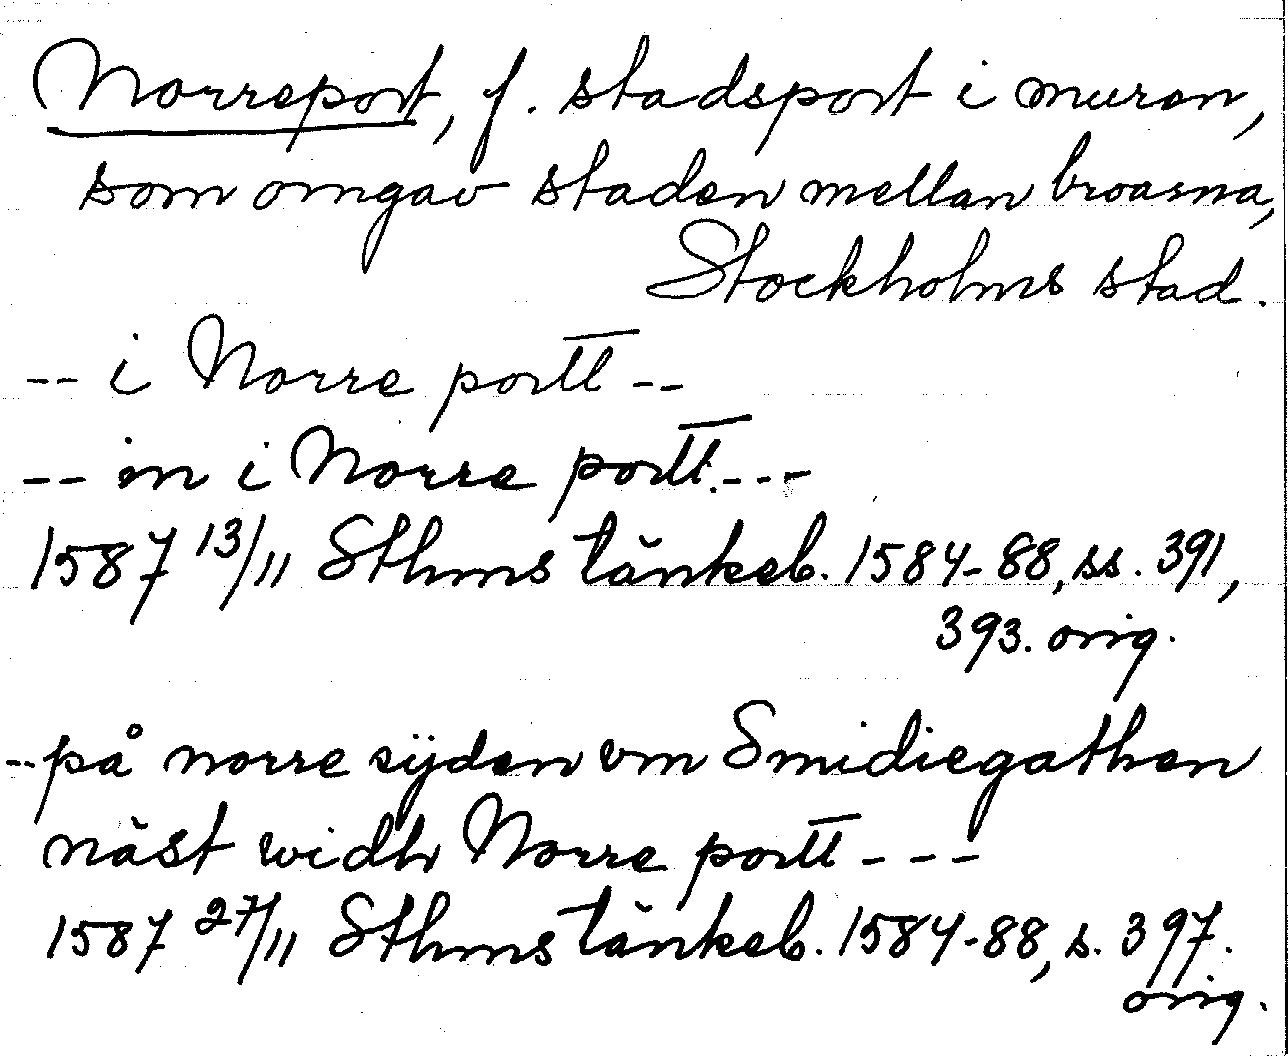 Norreport, f. stadsport i muren,
som omgav staden mellan broarna,
Stockholms stad.
-- i Norre portt --
-- in i Norre portt. ---
1587 13/11 Sthms tänkeb. 1584-88, ss. 391,
393. orig.
-- på norre sijden vm Smidiegathen
näst widh Norre portt ---
1587 27/11 Sthms tänkeb. 1584-88, s. 397.
orig.